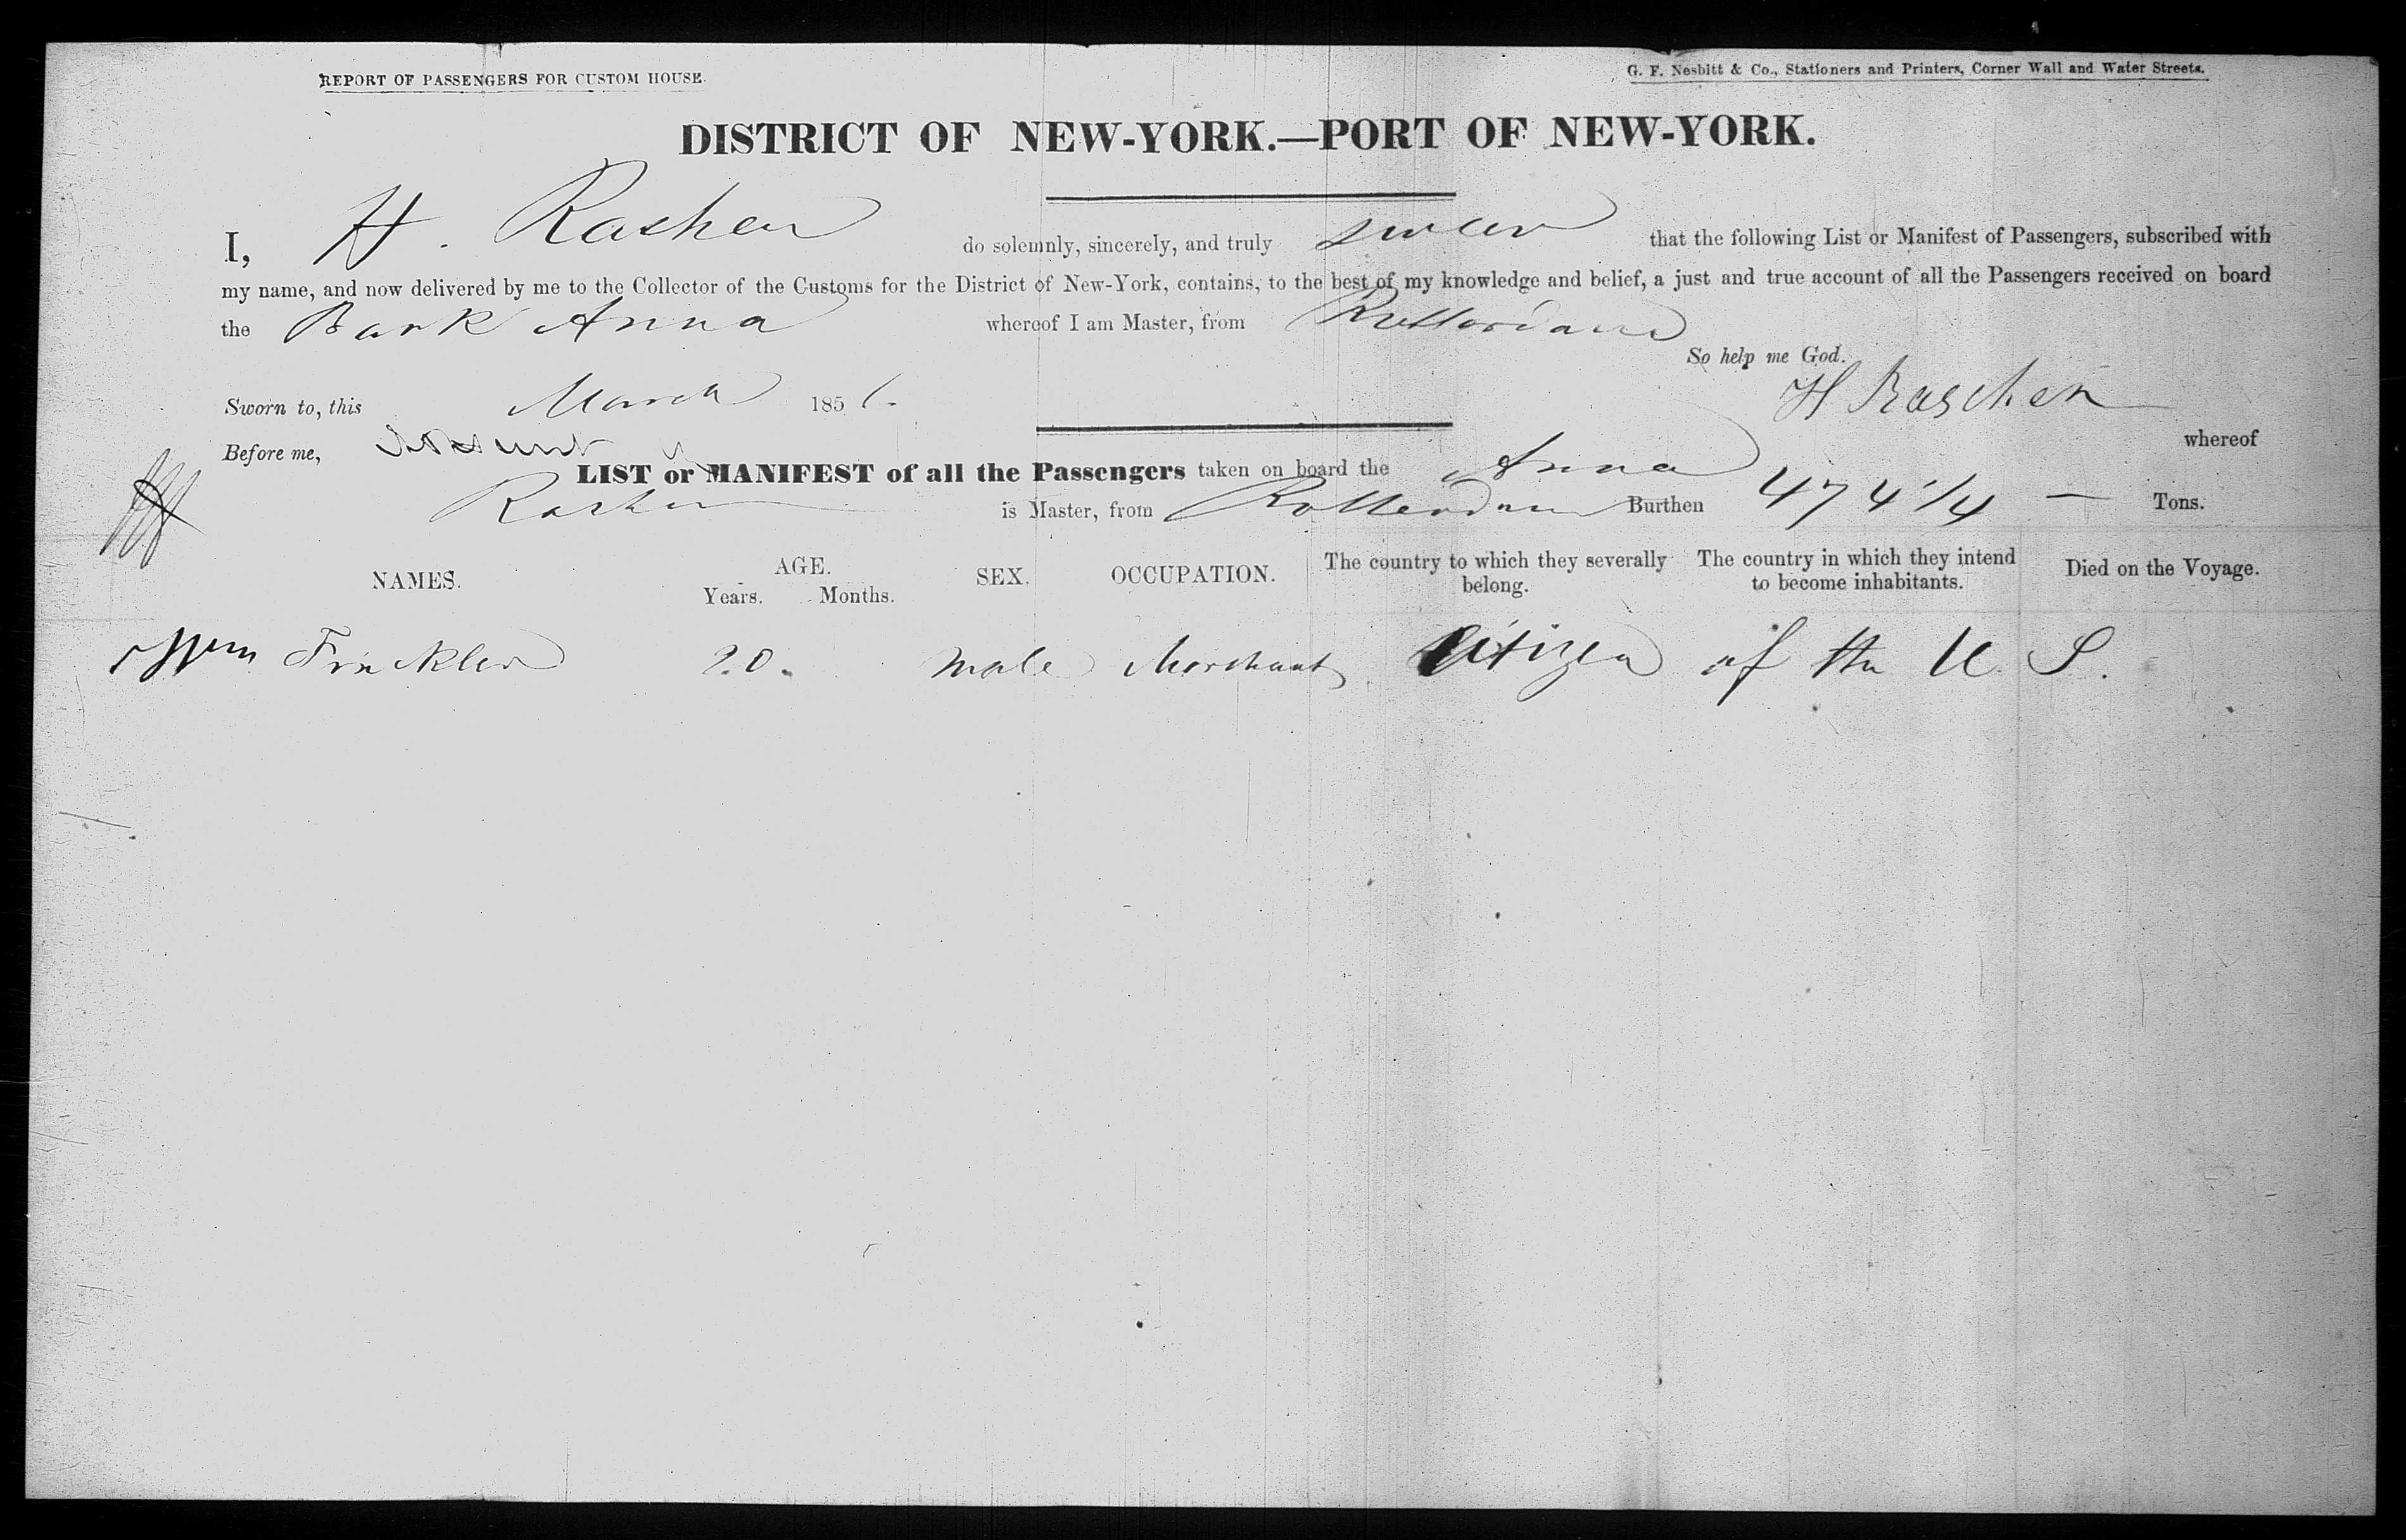 REPORT OF PASSENGERS FOR CUSTOM HOUSE.
G. F. Nesbitt & Co., Stationers and Printers, Corner Wall and Water Streets.
DISTRICT OF NEW-YORK.—PORT OF NEW-YORK.
I, H. Rashen do solemnly, sincerely, and truly swear that the following List or Manifest of Passengers, subscribed with
my name, and now delivered by me to the Collector of the Customs for the District of New-York, contains, to the best of my knowledge and belief, a just and true account of all the Passengers received on board
the Bark Anna whereof I am Master, from Rotterdam
So help me God.
Sworn to, this March 185
H Raschen
Before me,
whereof
LIST or MANIFEST of all the Passengers taken on board the Anna
Rashen is Master, from Rotterdam Burthen 474 1/4 — Tons.
NAMES. AGE. Years. Months. SEX. OCCUPATION. The country to which they severally belong. The country in which they intend to become inhabitants. Died on the Voyage.
Wm Frickler 20. male Merchant Citizen of the U. S.